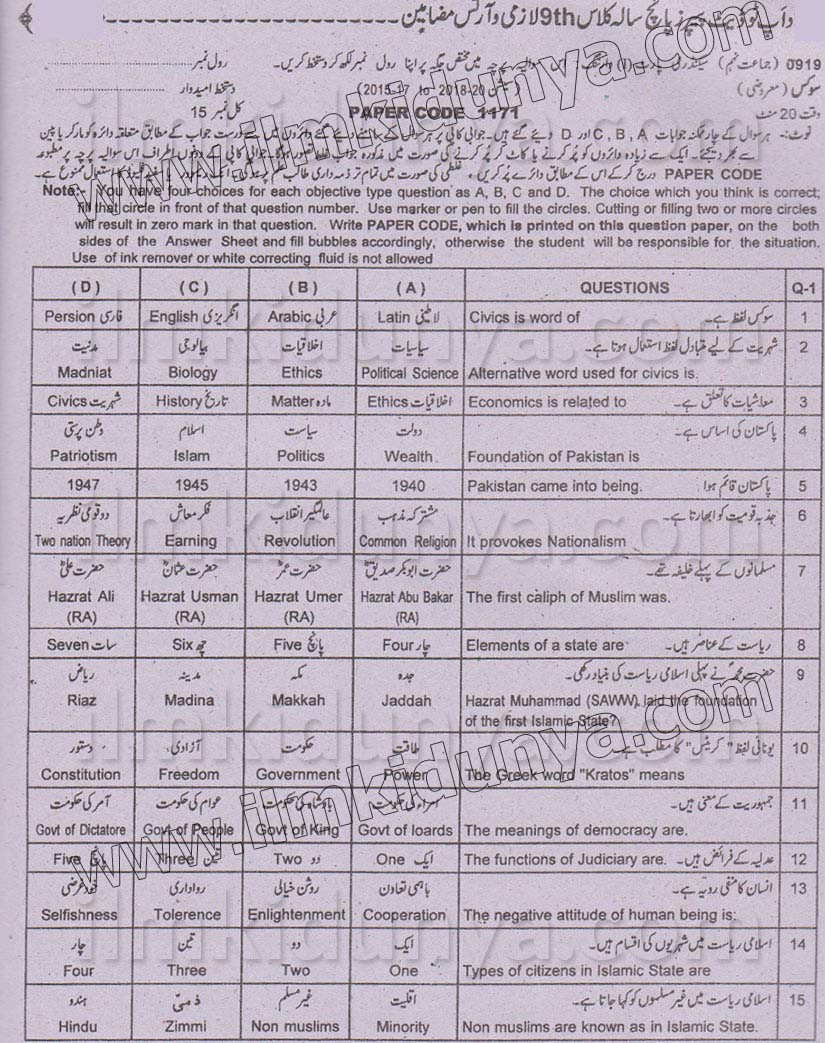 و اپ ٹو ڈیٹ پیپرز پانچ سالہ کلاس 9th لازمی و آرٹس مضامین
0919 (جماعت نہم) سیکنڈری پارٹ (I) وارننگ:۔ اس سوالیہ پرچہ میں مختص جگہ پر اپنا رول نمبر لکھ کر دستخط کریں۔ رول نمبر
سوکس (معروضی) (سیشن 2018-20 to 2015-17) دستخط امیدوار
وقت 20 منٹ PAPER CODE 1171 کل نمبر 15
نوٹ:۔ ہر سوال کے چار ممکنہ جوابات C,B,A اور D دیئے گئے ہیں۔ جوابی کاپی پر ہر سوال کے سامنے دیئے گئے دائروں میں سے درست جواب کے مطابق متعلقہ دائرہ کو مارکر یا پین
سے بھر دیجئے۔ ایک سے زیادہ دائروں کو پُر کرنے یا کاٹ کر پُر کرنے کی صورت میں مذکورہ جواب غلط تصور ہوگا۔ جوابی کاپی کے دونوں اطراف اس سوالیہ پرچہ پر مطبوعہ
PAPER CODE درج کر کے اس کے مطابق دائرے پُر کریں، غلطی کی صورت میں تمام تر ذمہ داری طالب علم پر ہوگی۔ کا استعمال ممنوع ہے۔
Note:- You have four choices for each objective type question as A, B, C and D. The choice which you think is correct;
fill that circle in front of that question number. Use marker or pen to fill the circles. Cutting or filling two or more circles
will result in zero mark in that question. Write PAPER CODE, which is printed on this question paper, on the both
sides of the Answer Sheet and fill bubbles accordingly, otherwise the student will be responsible for the situation.
Use of ink remover or white correcting fluid is not allowed
( D ) ( C ) ( B ) ( A ) QUESTIONS Q-1
Persion فارسی English انگریزی Arabic عربی Latin لاطینی Civics is word of سوکس لفظ ہے۔ 1
مدنیت بیالوجی اخلاقیات سیاسیات شہریت کے لیے متبادل لفظ استعمال ہوتا ہے۔ 2
Madniat Biology Ethics Political Science Alternative word used for civics is.
Civics شہریت History تاریخ Matter مادہ Ethics اخلاقیات Economics is related to معاشیات کا تعلق ہے۔ 3
وطن پرستی اسلام سیاست دولت پاکستان کی اساس ہے۔ 4
Patriotism Islam Politics Wealth Foundation of Pakistan is
1947 1945 1943 1940 Pakistan came into being. پاکستان قائم ہوا 5
دو قومی نظریہ فکر معاش عالمگیر انقلاب مشترکہ مذہب جذبہ قومیت کو ابھارتا ہے۔ 6
Two nation Theory Earning Revolution Common Religion It provokes Nationalism
حضرت علیؓ حضرت عثمانؓ حضرت عمرؓ حضرت ابوبکر صدیقؓ مسلمانوں کے پہلے خلیفہ تھے۔ 7
Hazrat Ali Hazrat Usman Hazrat Umer Hazrat Abu Bakar The first caliph of Muslim was.
(RA) (RA) (RA) (RA)
Seven سات Six چھ Five پانچ Four چار Elements of a state are ریاست کے عناصر ہیں۔ 8
ریاض مدینہ مکہ جدہ حضرت محمدؐ نے پہلی اسلامی ریاست کی بنیاد رکھی۔ 9
Riaz Madina Makkah Jaddah Hazrat Muhammad (SAWW) laid the foundation
of the first Islamic State?
دستور آزادی حکومت طاقت یونانی لفظ "کریٹس" کا مطلب ہے۔ 10
Constitution Freedom Government Power The Greek word "Kratos" means
آمر کی حکومت عوام کی حکومت بادشاہ کی حکومت امراء کی حکومت جمہوریت کے معنی ہیں۔ 11
Govt of Dictatore Govt of People Govt of King Govt of loards The meanings of democracy are.
Five پانچ Three تین Two دو One ایک The functions of Judiciary are. عدلیہ کے فرائض ہیں۔ 12
خود غرضی رواداری روشن خیالی باہمی تعاون انسان کا منفی رویہ ہے۔ 13
Selfishness Tolerence Enlightenment Cooperation The negative attitude of human being is:
چار تین دو ایک اسلامی ریاست میں شہریوں کی اقسام ہیں۔ 14
Four Three Two One Types of citizens in Islamic State are
ہندو ذمّی غیر مسلم اقلیت اسلامی ریاست میں غیر مسلموں کو کہا جاتا ہے۔ 15
Hindu Zimmi Non muslims Minority Non muslims are known as in Islamic State.
www.ilmkidunya.com
www.ilmkidunya.com
ilmkidunya.com
ilmkidunya.com
ilmkidunya.com
ilmkidunya.com
ilmkidunya.com